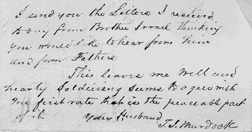 I send you the Letters I received
to day from Brother Israel thinking
you would like to hear from him
and from Father
This leaves me well and
hearty Soldiering seems to agree with
me first rate that is the peaceable part
of it
Your Husband
J. Murdock